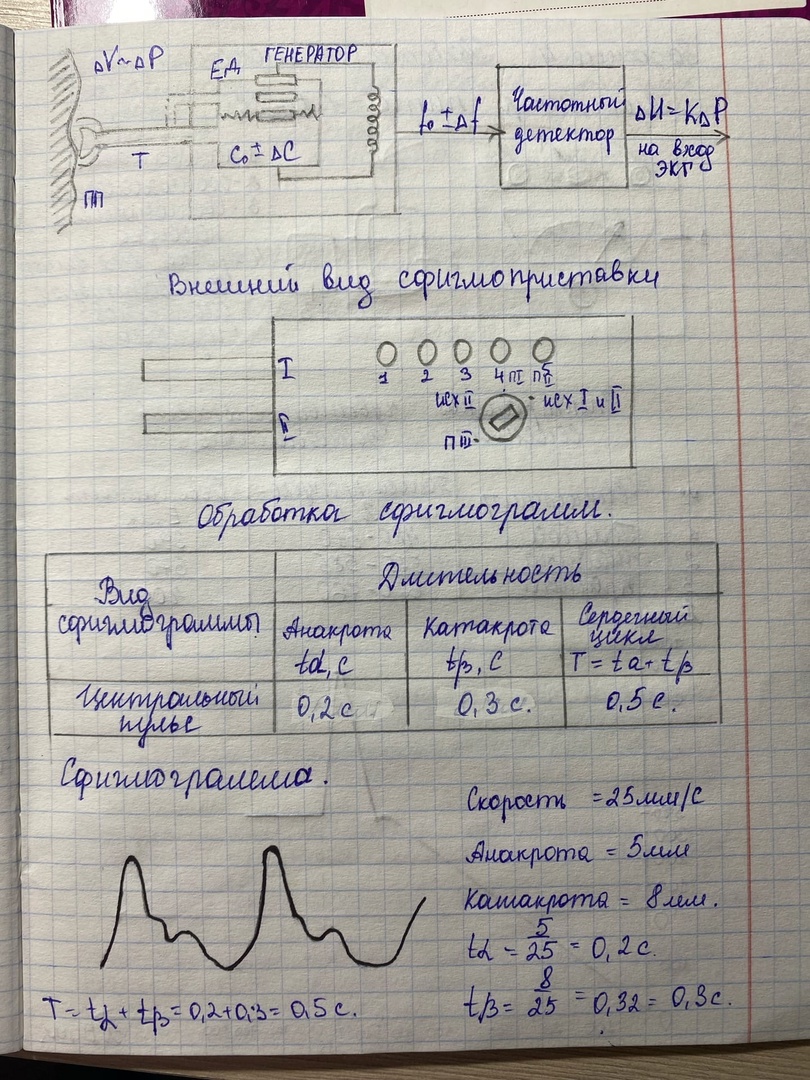 ΔV~ΔP
ЕД
ГЕНЕРАТОР
T
C₀ ± ΔC
ПП
f₀ ± Δf
Частотный
детектор
ΔU = KΔP
на вход
ЭКГ
Внешний вид сфигмоприставки
I
II
1 2 3 4 ПI ПII
исх II
исх I и II
П III
Обработка сфигмограмм.
Вид
сфигмограммы
Длительность
Анакрота
tα, с
Катакрота
tβ, с
Сердечный
цикл
T = tα + tβ
Центральный
пульс
0,2 с
0,3 с.
0,5 с.
Сфигмограмма.
Скорость = 25мм/с
Анакрота = 5мм
Катакрота = 8мм.
tα = 5/25 = 0,2с.
tβ = 8/25 = 0,32 = 0,3с.
T = tα + tβ = 0,2+0,3 = 0,5 с.